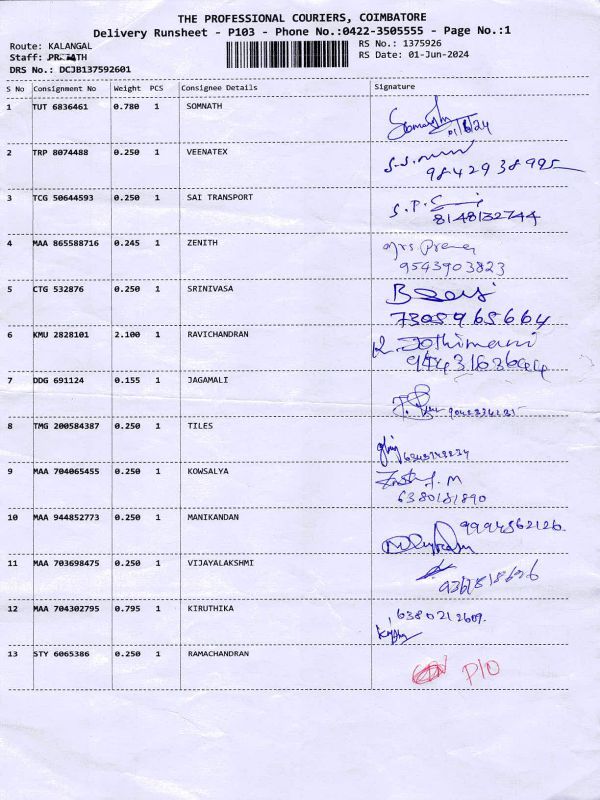 THE PROFESSIONAL COURIERS, COIMBATORE
Delivery Runsheet - P103 - Phone No.:0422-3505555 - Page No.:1
Route: KALANGAL
RS No.: 1375926
Staff:
RS Date: 01-Jun-2024
DRS No.: DCJB137592601
S No Consignment No Weight PCS Consignee Details Signature
1 TUT 6836461 0.780 1 SOMNATH
2 TRP 8074488 0.250 1 VEENATEX
9842938995
3 TCG 50644593 0.250 1 SAI TRANSPORT
8148132744
4 MAA 865588716 0.245 1 ZENITH
9543903823
5 CTG 532876 0.250 1 SRINIVASA
7305965664
6 KMU 2828101 2.100 1 RAVICHANDRAN
R. Jothimani
7 DDG 691124 0.155 1 JAGAMALI
8 TMG 200584387 0.250 1 TILES
9 MAA 704065455 0.250 1 KOWSALYA
6380181890
10 MAA 944852773 0.250 1 MANIKANDAN
9994562126
11 MAA 703698475 0.250 1 VIJAYALAKSHMI
12 MAA 704302795 0.795 1 KIRUTHIKA
6380212609.
13 STY 6065386 0.250 1 RAMACHANDRAN
P/O